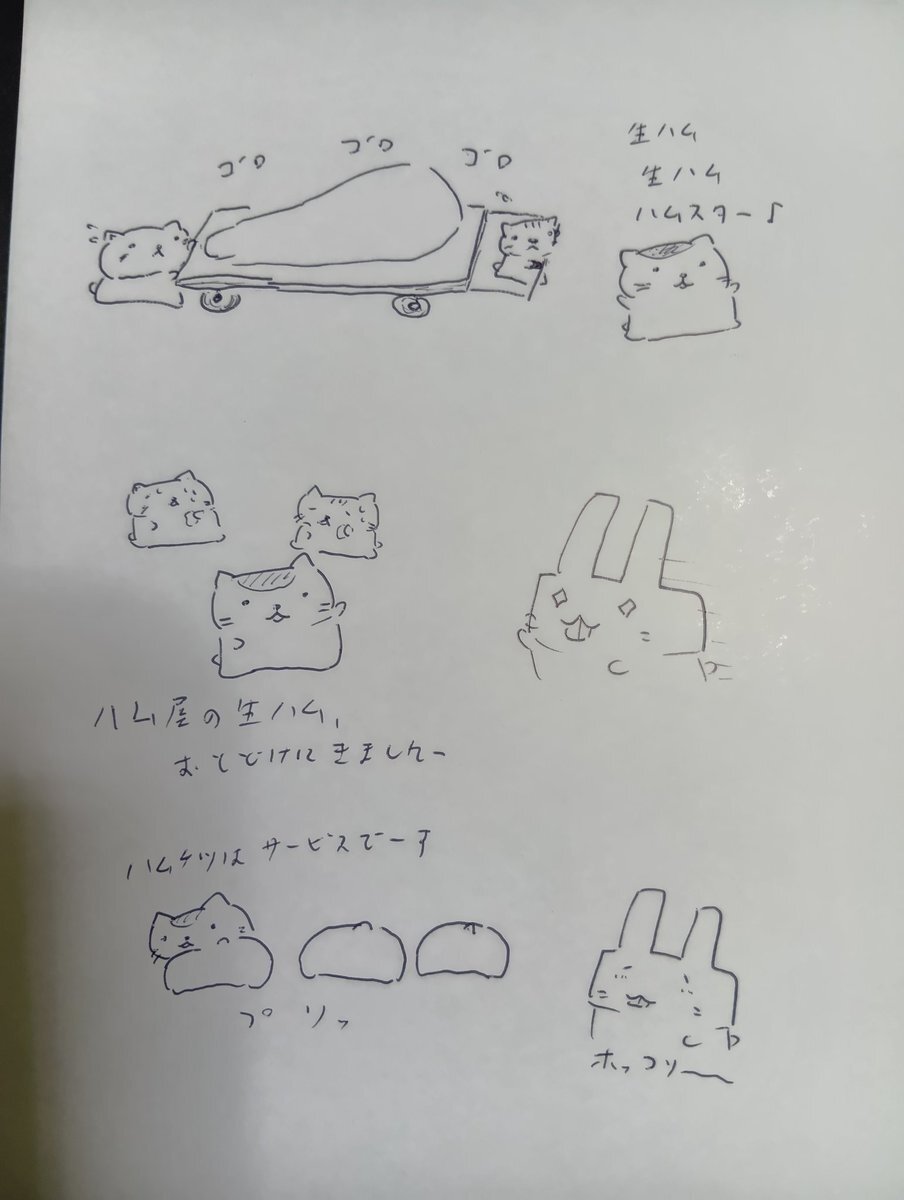 ゴロ
ゴロ
ゴロ
生ハム
生ハム
ハムスター♪
ハム屋の生ハム、
おとどけにきましたー
ハムケツはサービスでーす
プリッ
ホッコリー